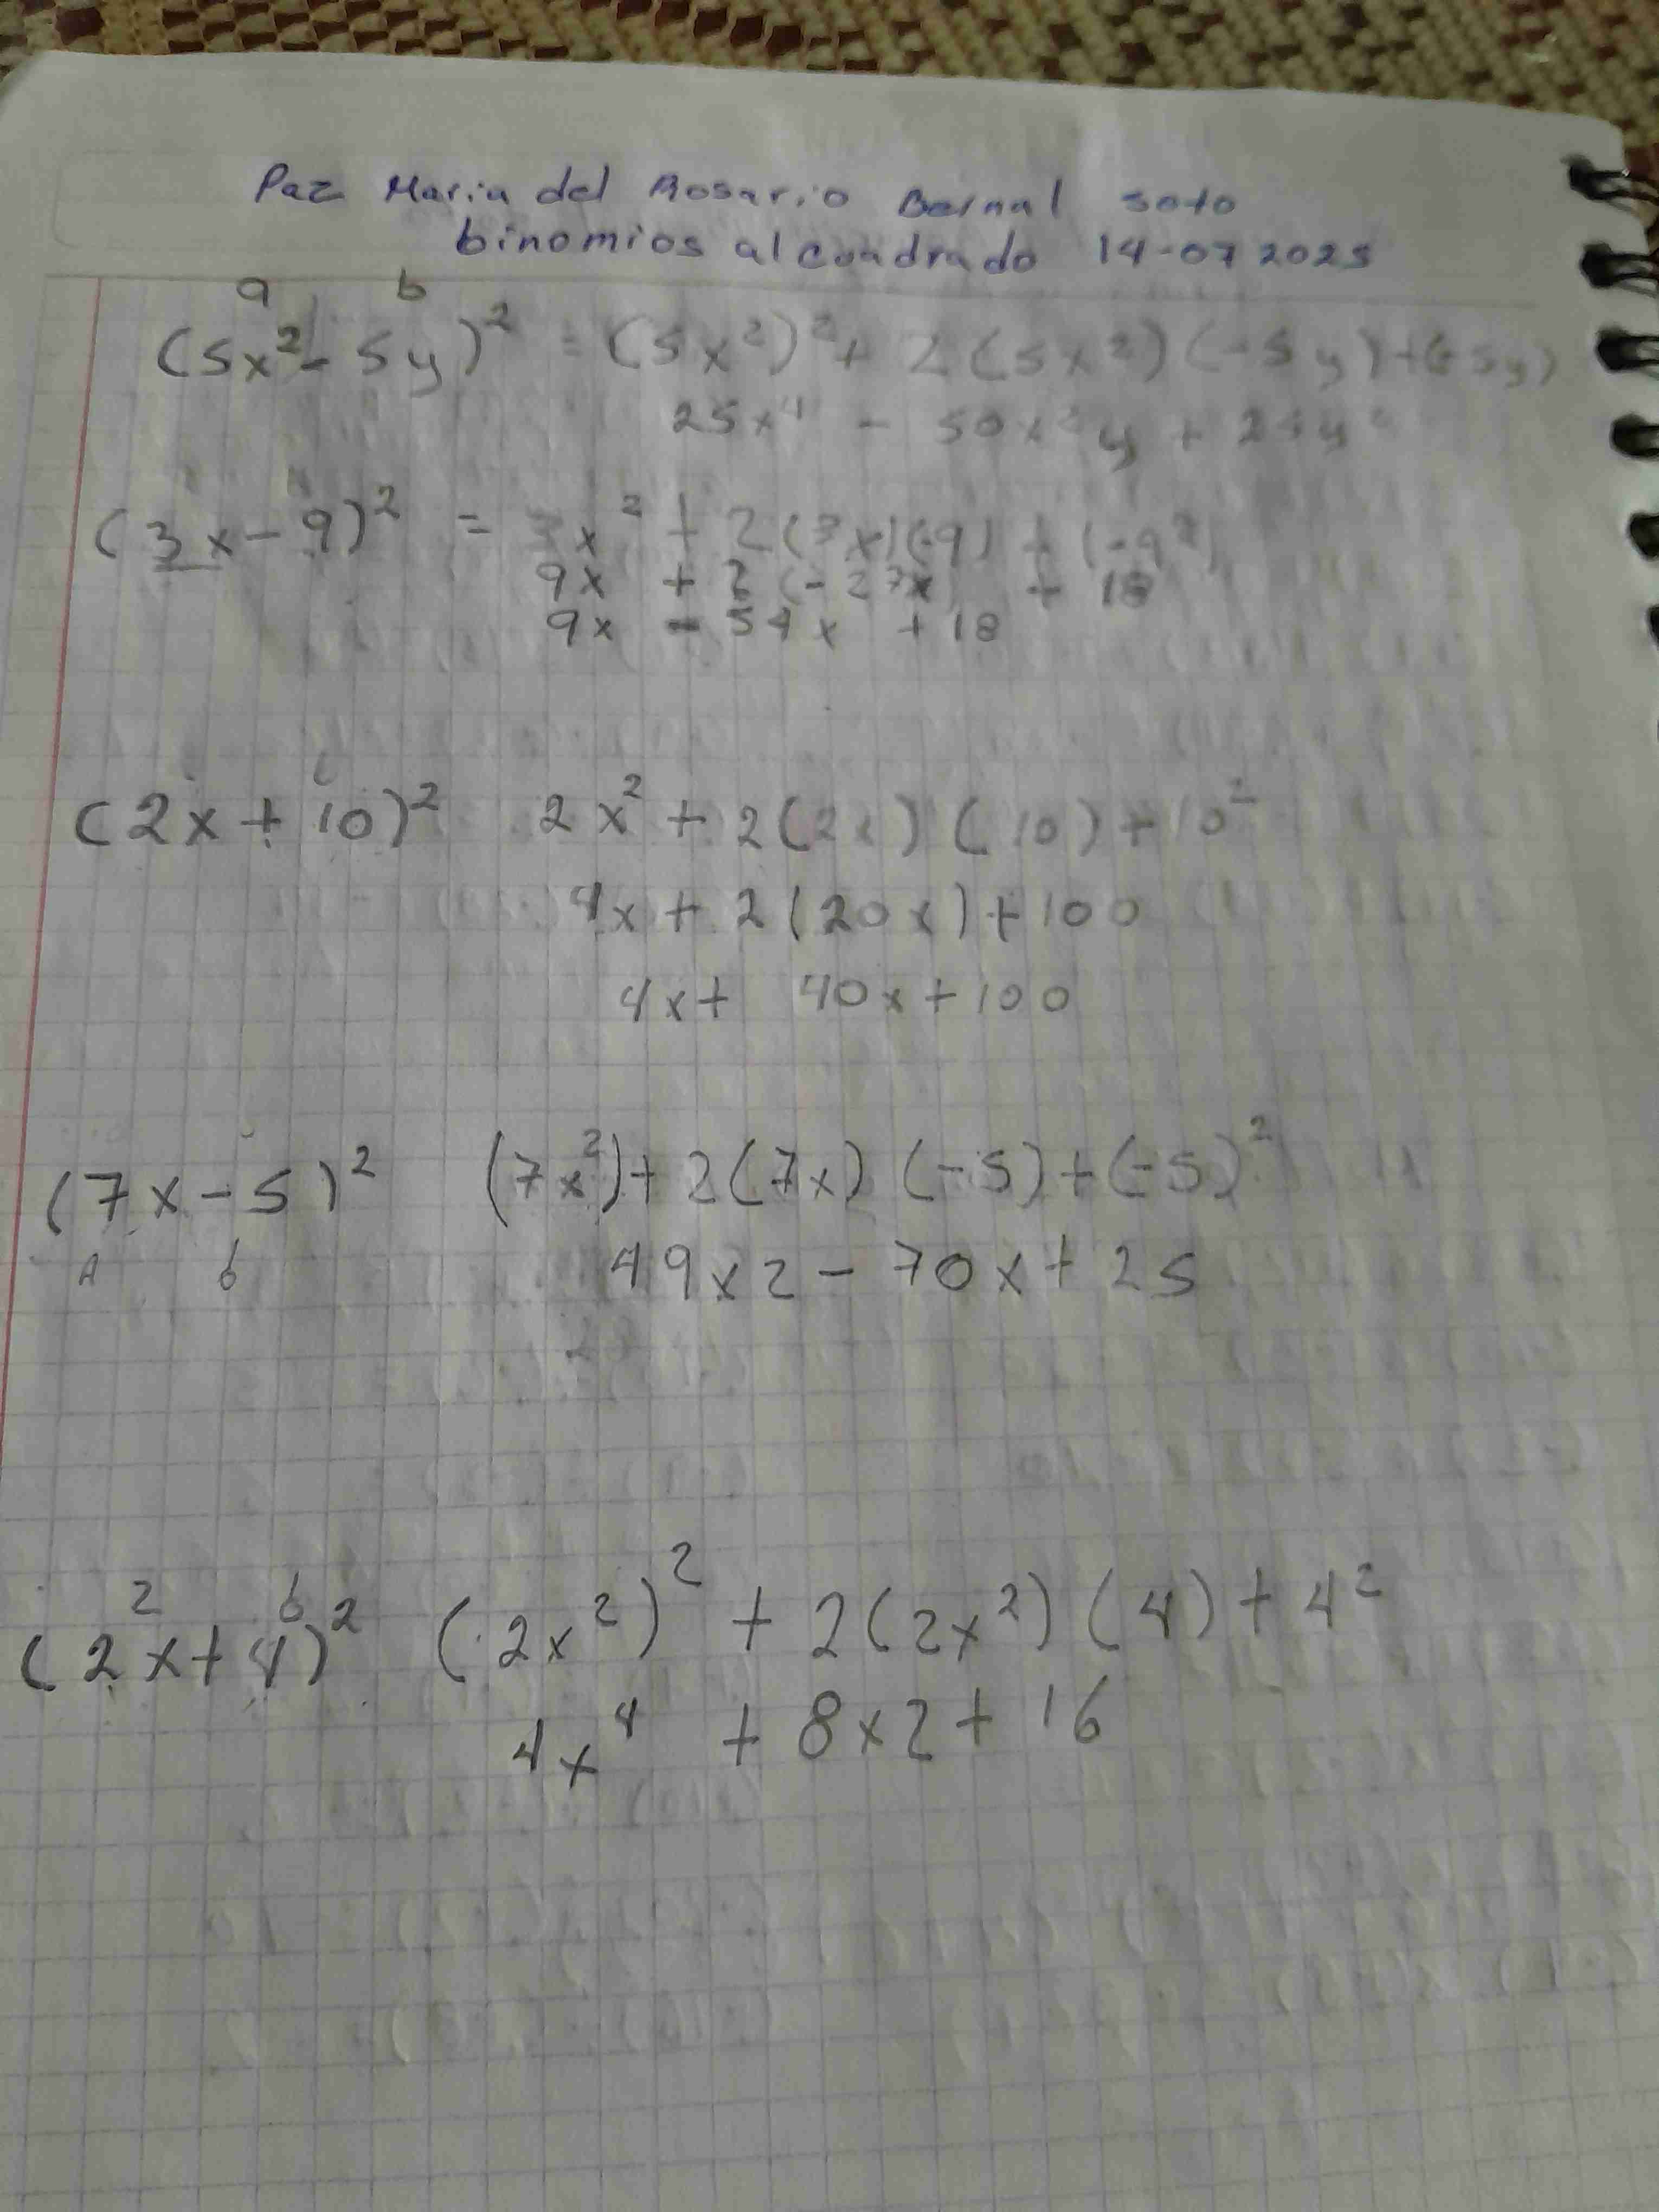 Paz Maria del Rosario Bernal soto
binomios al cuadrado 14-07 2025
a b
(5x²- 5y)² = (5x²)²+ 2(5x²)(-5y)+(-5y)
25x⁴ - 50x²y + 25y²
(3x-9)² = 3x² + 2(3x)(-9) + (-9²)
9x + 2(-27x) + 18
9x - 54x + 18
(2x+10)² 2x² + 2(2x)(10)+10²
4x + 2(20x)+100
4x+ 40x+100
(7x-5)² (7x²)+2(7x)(-5)+(-5)²
A b
49x2-70x+25
2 b
(2x+4)² (2x²)² + 2(2x²)(4)+4²
4x⁴ + 8x2+16